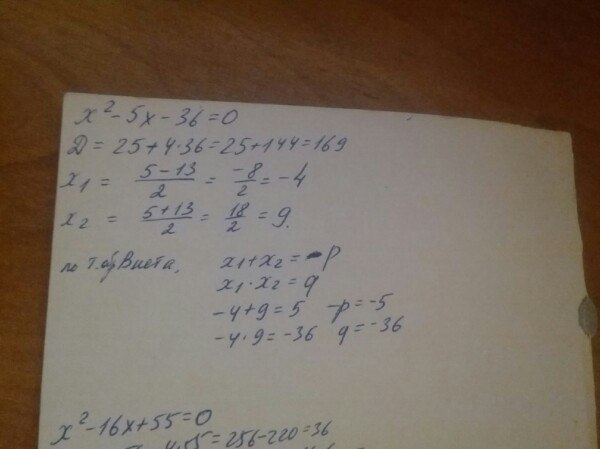 x² - 5x - 36 = 0
Д = 25 + 4·36 = 25 + 144 = 169
x₁ = (5 - 13)/2 = -8/2 = -4
x₂ = (5 + 13)/2 = 18/2 = 9.
по т. обр Виета, x₁ + x₂ = -p
x₁ · x₂ = q
-4 + 9 = 5 -p = -5
-4 · 9 = -36 q = -36
x² - 16x + 55 = 0
= 256 - 220 = 36